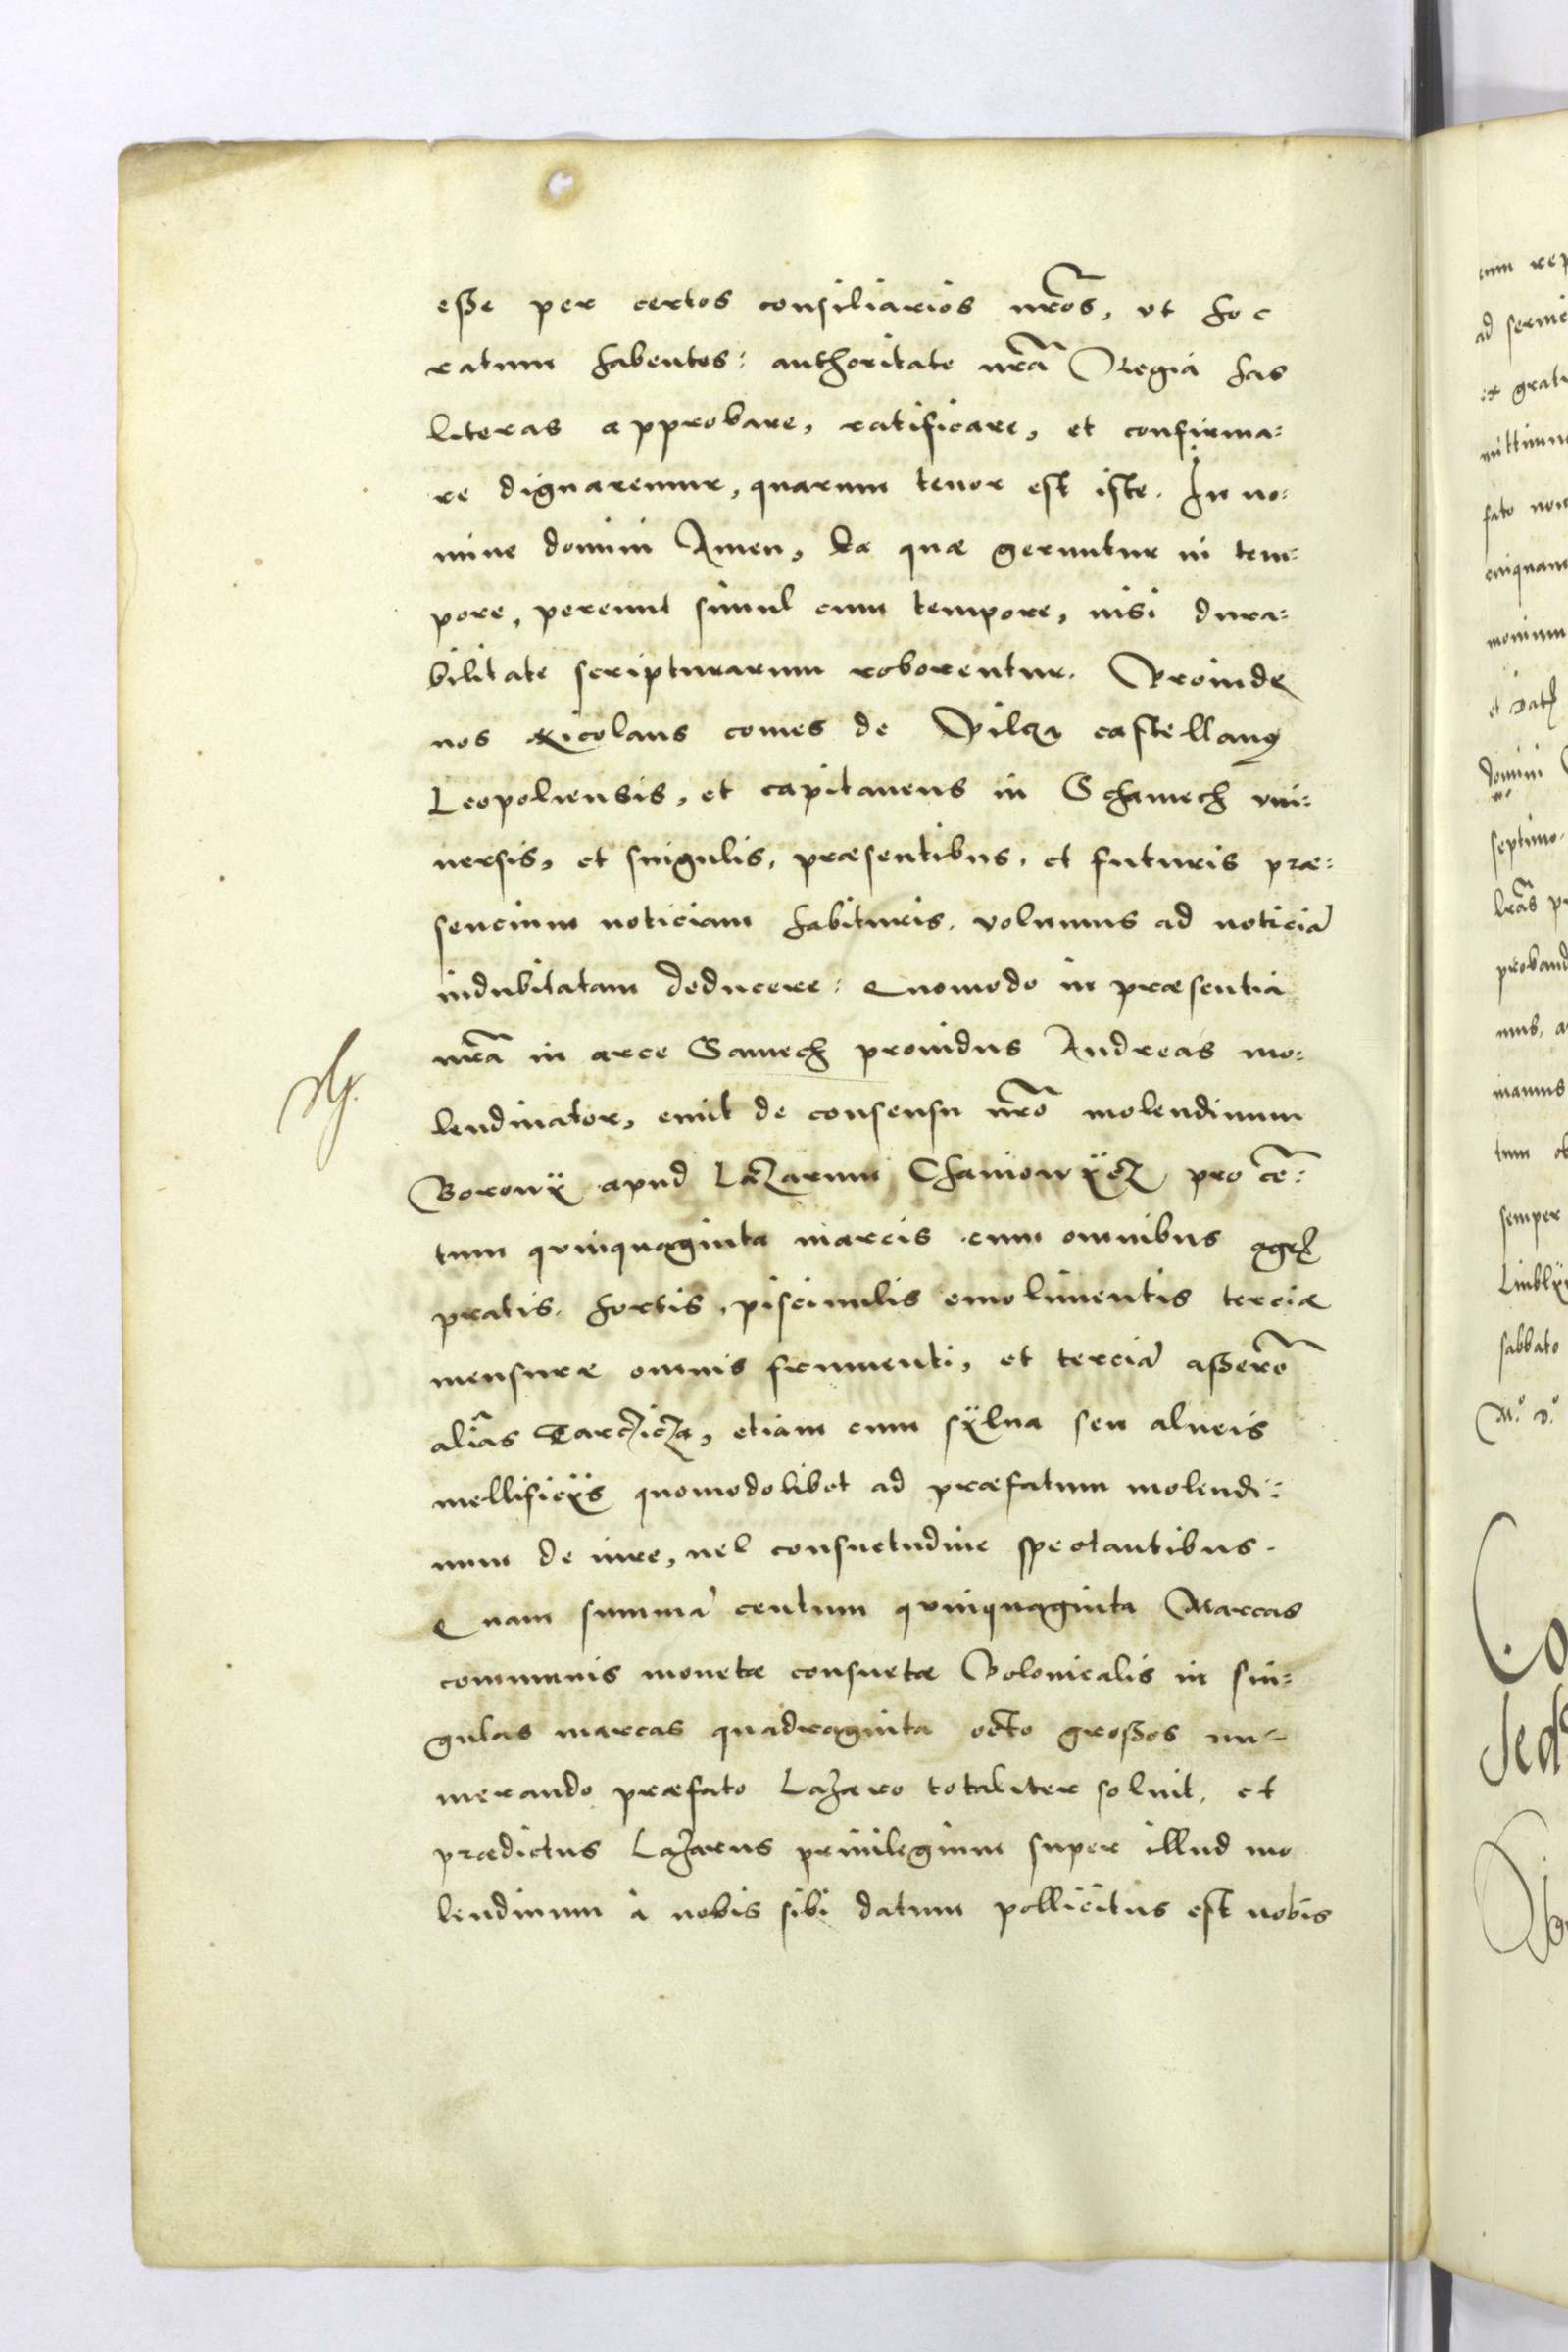 eße per certos consiliarios nr̃os, vt hoc
ratum habentes: authoritate nr̃a Regia has
literas approbare, ratificare, et confirma:
re dignaremur, quarum tenor est iste. In no:
mine domini Amen, Ea quæ geruntur in tem:
pore, pereunt simul cum tempore, nisi dura:
bilitate scripturarum roborentur. Proinde
nos Nicolaus comes de Pilcza castellanꝰ
Leopoliensis, et capitaneus in Schamech vni:
uersis, et singulis, præsentibus, et futuris præ:
sencium noticiam habituris. volumus ad noticiã
indubitatam deducere: Quomodo in præsentia
nr̃a in arce Samech prouidus Andreas mo:
lendinator, emit de consensu nr̃o molendinum
Borowÿ apud Lazarum Chaniowÿcz pro cẽ:
tum quinquaginta marcis cum omnibus agrꝭ
pratis. hortis, piscinulis emolimentis terciæ
mensuræ omnis frumenti, et terciã aßerũ
alĩas Tarczicza, etiam cum sÿlua seu alueis
mellificÿs quomodolibet ad præfatum molendi:
num de iure, uel consuetudine spectantibus.
Quam summã centum quinquaginta Marcas
communis monetæ consuetæ Polonicalis in sin:
gulas marcas quadraginta octo großos nu:
merando præfato Lazaro totaliter soluit, et
prædictus Lazarus priuilegium super illud mo
lendinum à nobis sibi datum pollicitus est nobis